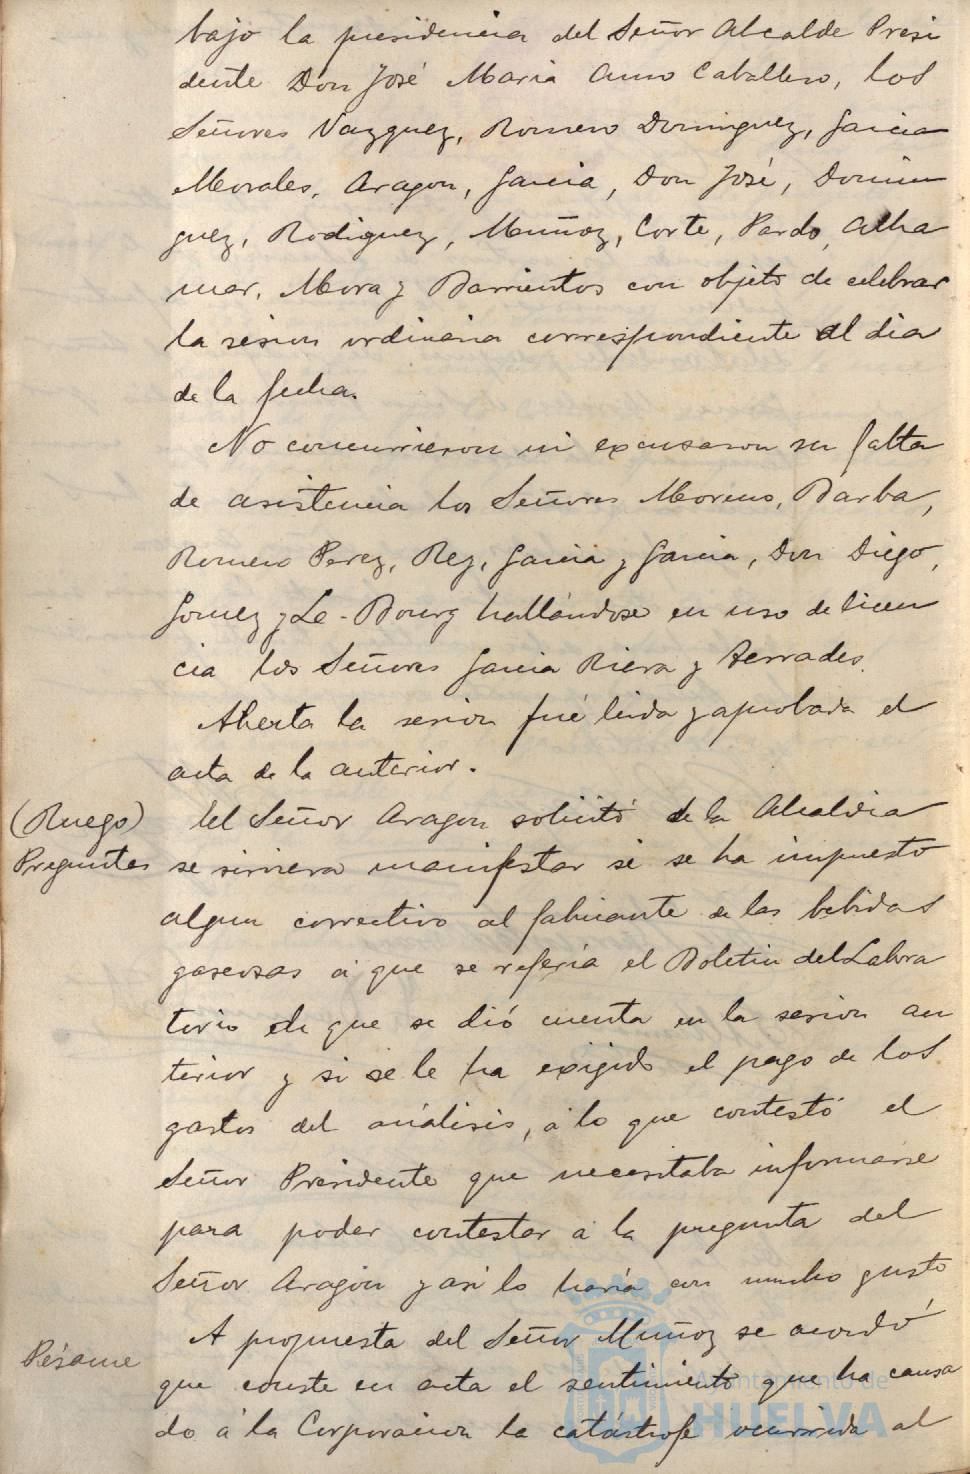 bajo la presidencia del Señor Alcalde Presi
dente Don José Maria Amo Caballero, los
Señores Vazquez, Romero Dominguez, Garcia
Morales, Aragon, Garcia, Don José, Domin
guez, Rodiguez, Muñoz, Corte, Pardo, Alba
mar, Mora y Barrientos con objeto de celebrar
la sesion ordinaria correspondiente al dia
de la fecha.
No concurrieron ni excusaron su falta
de asistencia los Señores Moreno, Barba,
Romero Perez, Rey, Garcia y Garcia, Don Diego,
Gomez y Le-Bourg hallándose en uso de licen
cia los Señores Garcia Riera y Terrades.
Abierta la sesion fué leida y aprobada el
acta de la anterior.
(Ruego)
Preguntas
El Señor Aragon solicitó de la Alcaldia
se sirviera manifestar si se ha impuesto
algun correctivo al fabricante de las bebidas
gaseosas á que se referia el Boletin del Labora
torio de que se dió cuenta en la sesion an
terior y si se le ha exigido el pago de los
gastos del análisis, á lo que contestó el
Señor Presidente que necesitaba informarse
para poder contestar á la pregunta del
Señor Aragón y asi lo haría con mucho gusto
Pésame
A propuesta del Señor Muñoz se acordó
que conste en acta el sentimiento que ha causa
do á la Corporacion la catástrofe ocurrida al
Ayuntamiento de
HUELVA